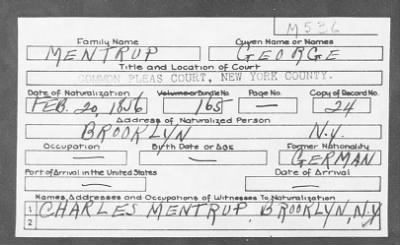 M536
Family Name Given Name or Names
MENTRUP GEORGE
Title and Location of Court
COMMON PLEAS COURT, NEW YORK COUNTY.
Date of Naturalization Volume or Bundle No. Page No. Copy of Record No.
FEB. 20, 1856 165 — 24
Address of Naturalized Person
BROOKLYN N.Y.
Occupation Birth Date or Age Former Nationality
— — GERMAN
Port of Arrival in the United States Date of Arrival
— —
Names, Addresses and Occupations of Witnesses To Naturalization
1 CHARLES MENTRUP, BROOKLYN, N.Y.
2